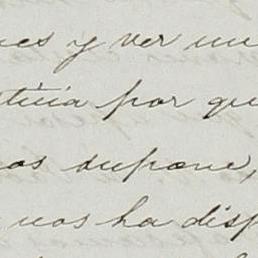 ues y ver un
sticia por qu
os supone,
nos ha disp